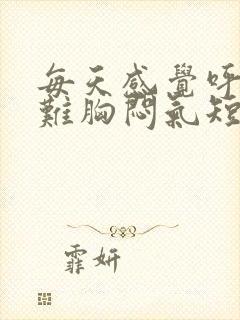 每天感覺呼
難胸悶氣短
霏妍